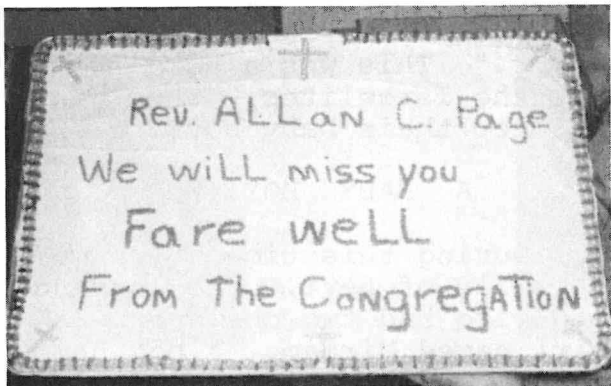 Rev. ALLan C. Page
We wiLL miss you
Fare weLL
From The CoNgregaTIoN